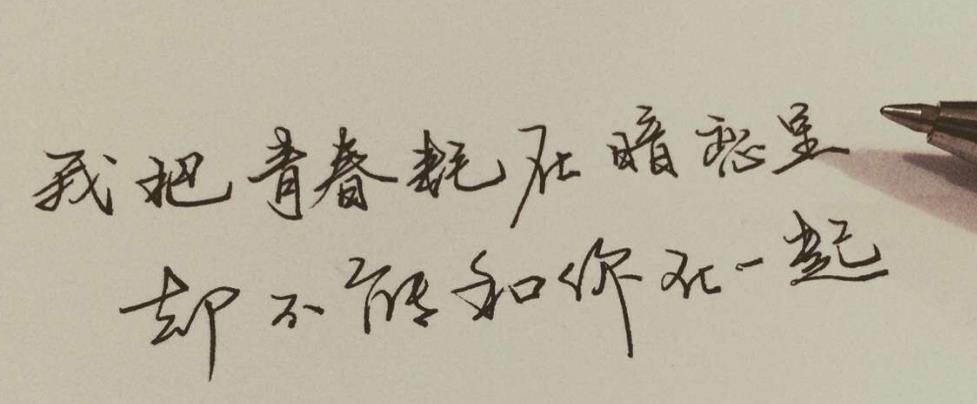 我把青春耗在暗恋里
却不能和你在一起